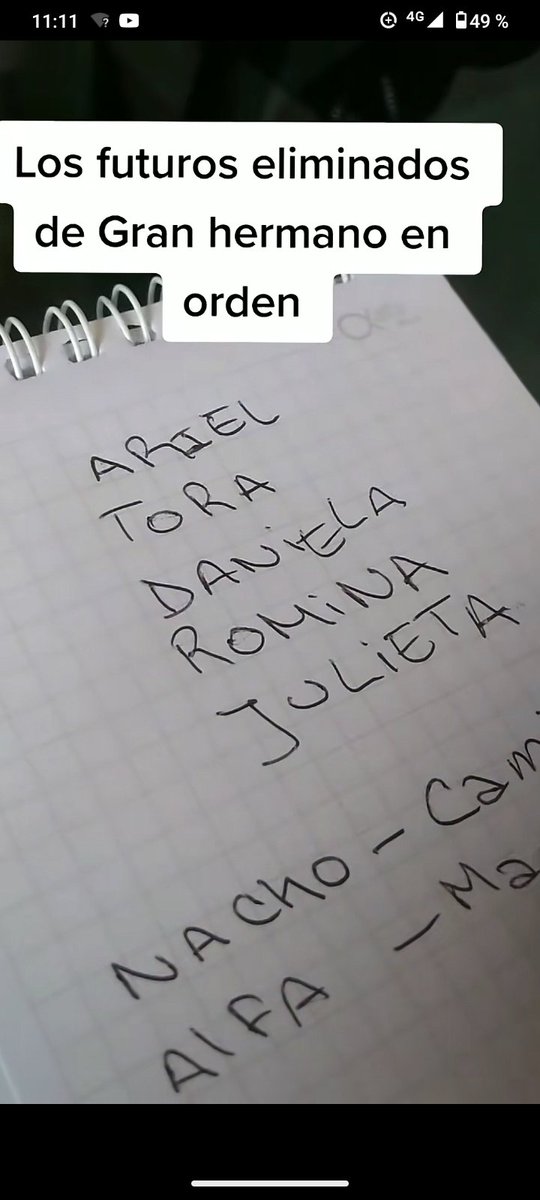 11:11
4G
49 %
Los futuros eliminados
de Gran hermano en
orden
ARIEL
TORA
DANiELA
ROMiNA
JULiETA
NACHO - Cam
AlFA - Ma